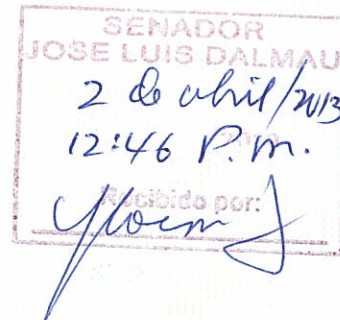 SENADOR
JOSE LUIS DALMAU
2 de abril/2013
12:46 P.m.
Recibido por: